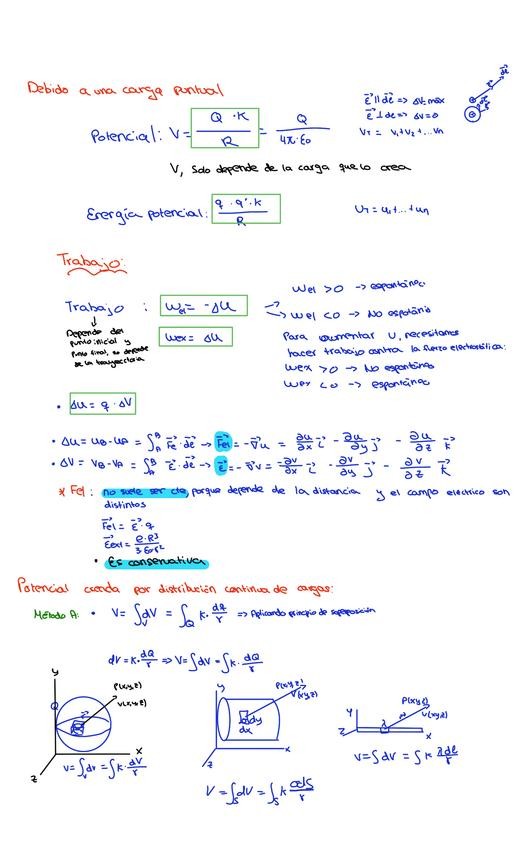 Debido a una carga puntual
Potencial: V = Q · K / R = Q / 4π·ε0
E⃗ ∥ dl⃗ => ΔV = máx
E⃗ ⊥ dl => ΔV = 0
VT = V1 + V2 + ... Vn
V, solo depende de la carga que lo crea
Energía potencial: q · q' · K / R
UT = U1 + ... + Un
Trabajo:
Trabajo : Wel = -ΔU
Wel > 0 -> espontáneo
Wel < 0 -> No espotánio
Depende del
punto inicial y
punto final, no depende
de la trayectoria
Wex = ΔU
Para aumentar U, necesitamos
hacer trabajo contra la fuerza electrostática:
Wex > 0 -> No espontáneo
Wex < 0 -> espontáneo
• ΔU = q · ΔV
• ΔU = UB - UA = ∫_A^B F⃗e · dl⃗ -> F⃗el = -∇⃗U = ∂U/∂x i⃗ - ∂U/∂y j⃗ - ∂U/∂z k⃗
• ΔV = VB - VA = ∫_A^B E⃗ · dl⃗ -> E⃗ = -∇⃗V = -∂V/∂x i⃗ - ∂V/∂y j⃗ - ∂V/∂z k⃗
* Fel : no suele ser cte, porque depende de la distancia y el campo electrico son
distintos
F⃗el = E⃗ · q
E⃗ext = ρ·R³ / 3ε0r²
• Es conservativa
Potencial creada por distribución continua de cargas:
Método A: • V = ∫_V dV = ∫_Q K · dQ/r => Aplicando principio de superposición
dV = K · dQ/r => V = ∫dV = ∫K · dQ/r
y
P(x,y,z)
V(x,y,z)
x
z
V = ∫_V dV = ∫K · dV/r
y
P(x,y,z)
V(x,y,z)
dy
dx
x
z
V = ∫_S dV = ∫_S K σdS/r
y
P(x,y,z)
V(x,y,z)
x
z
V = ∫dV = ∫K λdl/r